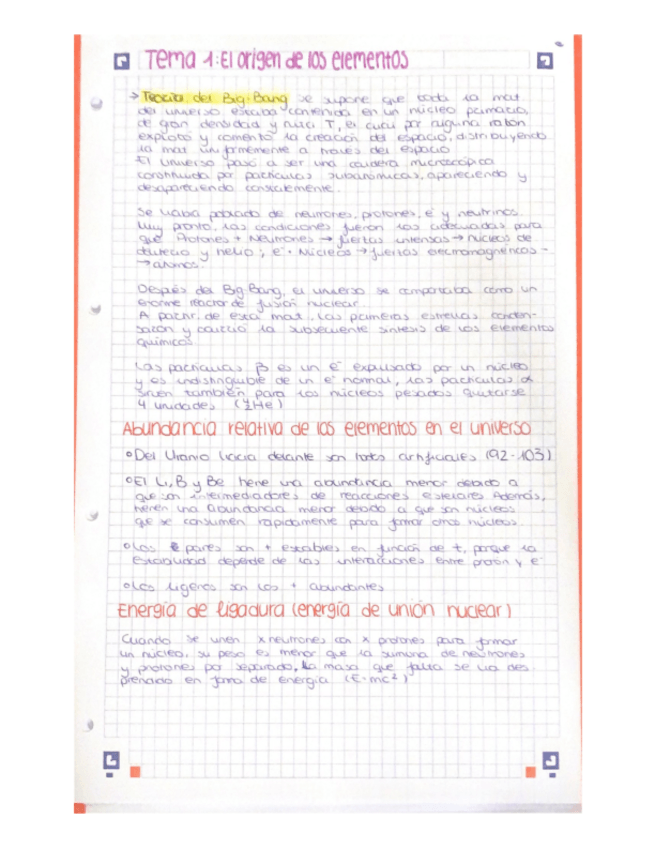 Tema 1: El origen de los elementos
→ Teoría del Big-Bang se supone que toda la mat
del universo estaba contenida en un núcleo primario,
de gran densidad y T, el cual por alguna razón
explotó y comenzó la creación del espacio, distribuyendo
la mat uniformemente a través del espacio
El Universo pasó a ser una caldera microscópica
constituida por partículas subatómicas, apareciendo y
desapareciendo
Se había poblado de neutrones, protones, e⁻ y neutrinos.
Muy pronto, las condiciones fueron las adecuadas para
que Protones + Neutrones → fuerzas intensas → núcleos de
deuterio y helio; e⁻ + Núcleos → fuerzas electromagnéticas -
→ átomos.
Después del Big-Bang, el universo se comportaba como un
enorme reactor de fusión nuclear.
A partir de esta mat. las primeras estrellas conden-
saron y la subsecuente síntesis de los elementos
químicos
Las partículas β es un e⁻ expulsado por un núcleo
y es indistinguible de un e⁻ normal, las partículas α
sirven también para los núcleos pesados quitarse
4 unidades (⁴₂He)
Abundancia relativa de los elementos en el universo
° Del Uranio hacia delante son todos artificiales (92-103)
° El Li, B y Be tiene una abundancia menor debido a
que son intermediadores de reacciones estelares Además,
tienen una abundancia menor debido a que son núcleos
que se consumen rápidamente para formar otros núcleos.
° Los pares son + estables en función de t, porque la
estabilidad depende de las interacciones entre protón y e⁻
° Los ligeros son los + abundantes
Energía de ligadura (energía de unión nuclear)
Cuando se unen x neutrones con x protones para formar
un núcleo, su peso es menor que la suma de neutrones
y protones por separado, la masa que falta se ha des-
prendido en forma de energía (E=mc²)